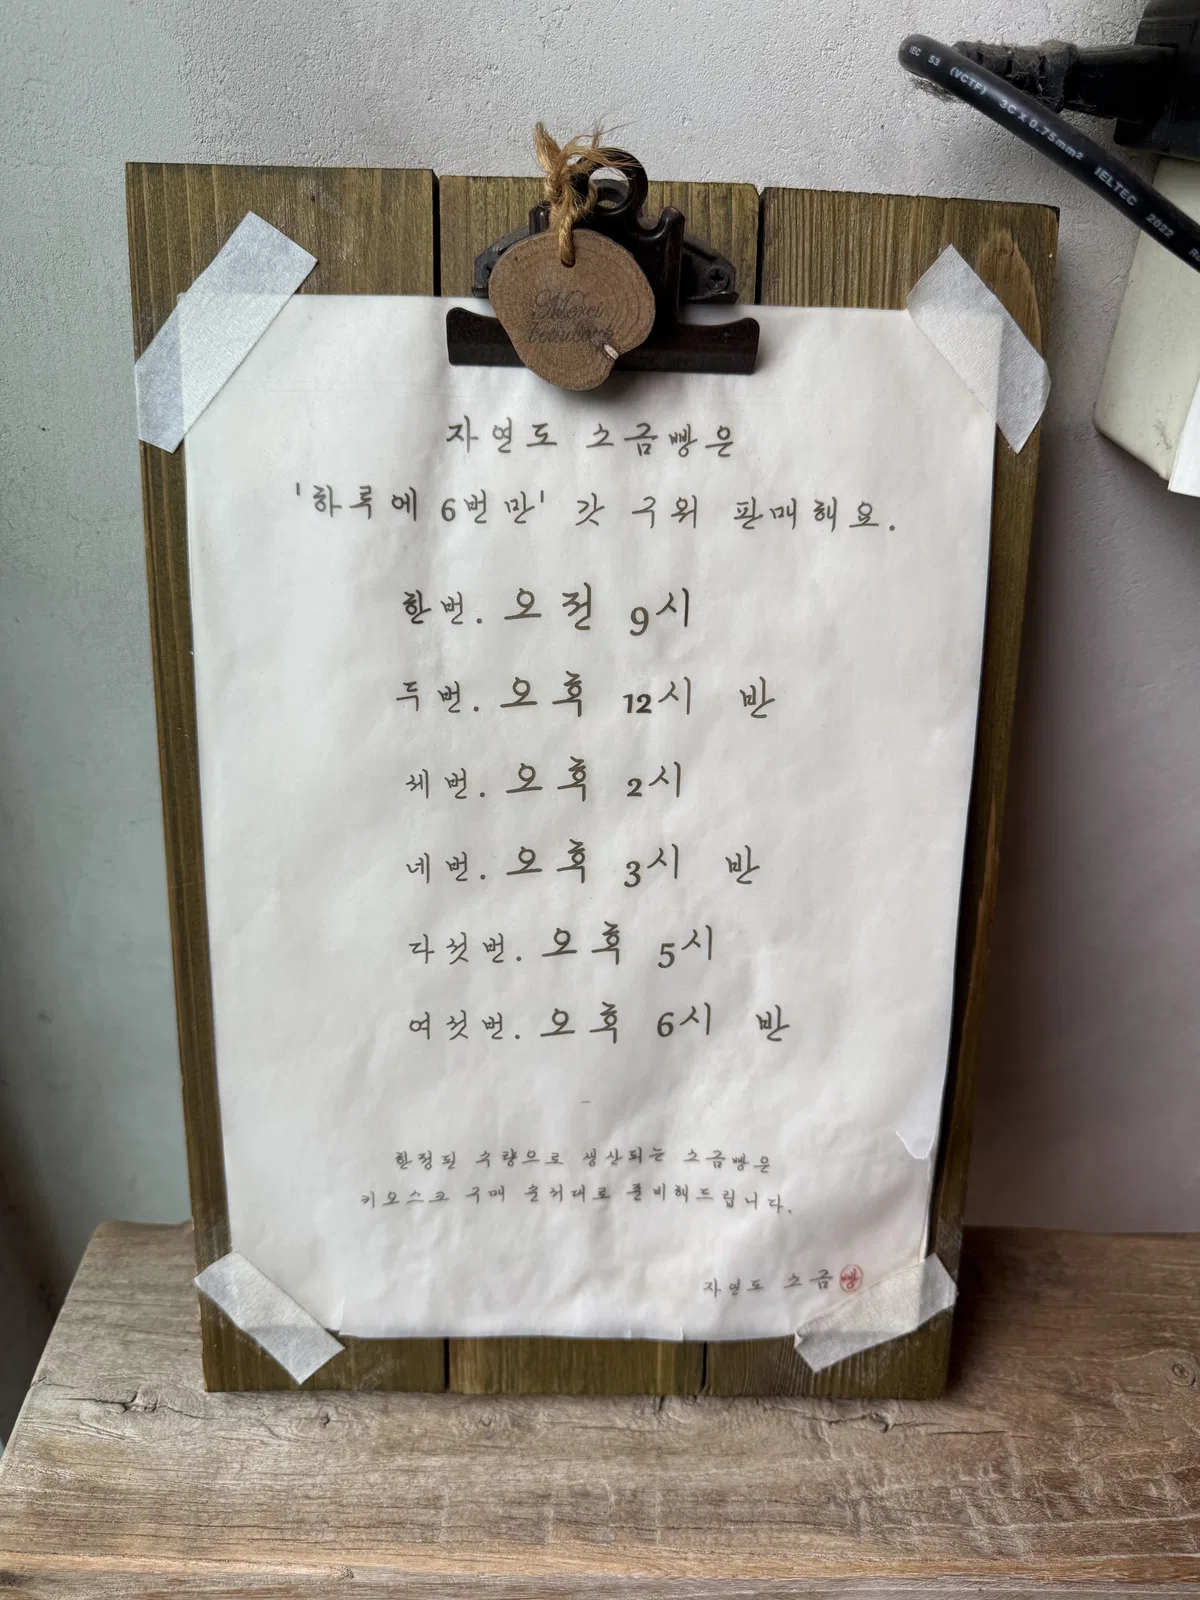 IEC 53 (VCTF) 3C X 0.75mm² IELTEC 2022
Merci
beaucoup
자연도 소금빵은
'하루에 6번만' 갓 구워 판매해요.
한번. 오전 9시
두번. 오후 12시 반
세번. 오후 2시
네번. 오후 3시 반
다섯번. 오후 5시
여섯번. 오후 6시 반
-
한정된 수량으로 생산되는 소금빵은
키오스크 구매 순서대로 준비해드립니다.
자연도 소금빵